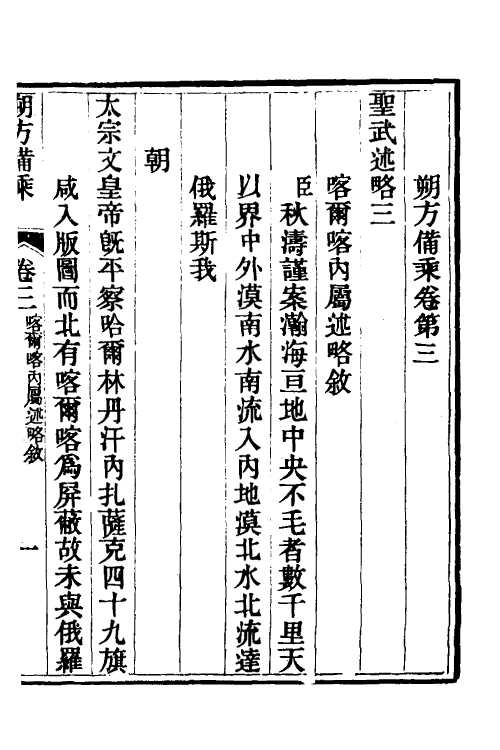 朔方備乘卷第三
聖武述略三
喀爾喀內屬述略敘
臣秋濤謹案瀚海亘地中央不毛者數千里天
以界中外漠南水南流入內地漠北水北流達
俄羅斯我
朝
太宗文皇帝旣平察哈爾林丹汗內扎薩克四十九旗
咸入版圖而北有喀爾喀爲屏蔽故未與俄羅
朔方備乘 卷三 喀爾喀內屬述略敘 一